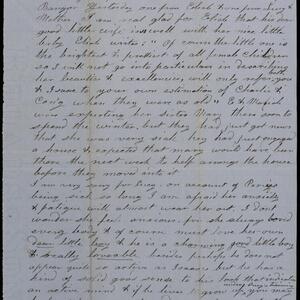 Bangor Yesterday one from Elijah & one from Lucy &
Mother. I am real glad for Elijah that his dear
good little wife is well with her nice little
baby. Elijah writes, "Of course the little one is
the brightest & prettiest of all female children
so I will not go into particulars in describing
her beauties & excellencies, will only refer you both
& Susie to your own estimation of Charlie &
when they were as old" E &
was expecting her sister Mary there soon to
spend the winter, but they had just got news
that she was very sick, they had just engaged
a house & expected that mary would have been
there the next week to help arrange the house
before they moved into it
I am very sorry for Lucy on account of
being sick so long I am afraid her anxiety
& fatigue will almost wear her out, I don't
wonder she feels anxious for she always loved
every body & of course must love her own
dear little boy & he is a charming good little boy
& really loveable besides perhaps he does not
appear quite so active as some but he has a
kind of good sense to his look that indicates
an active mind & if he lives to grow up, you may